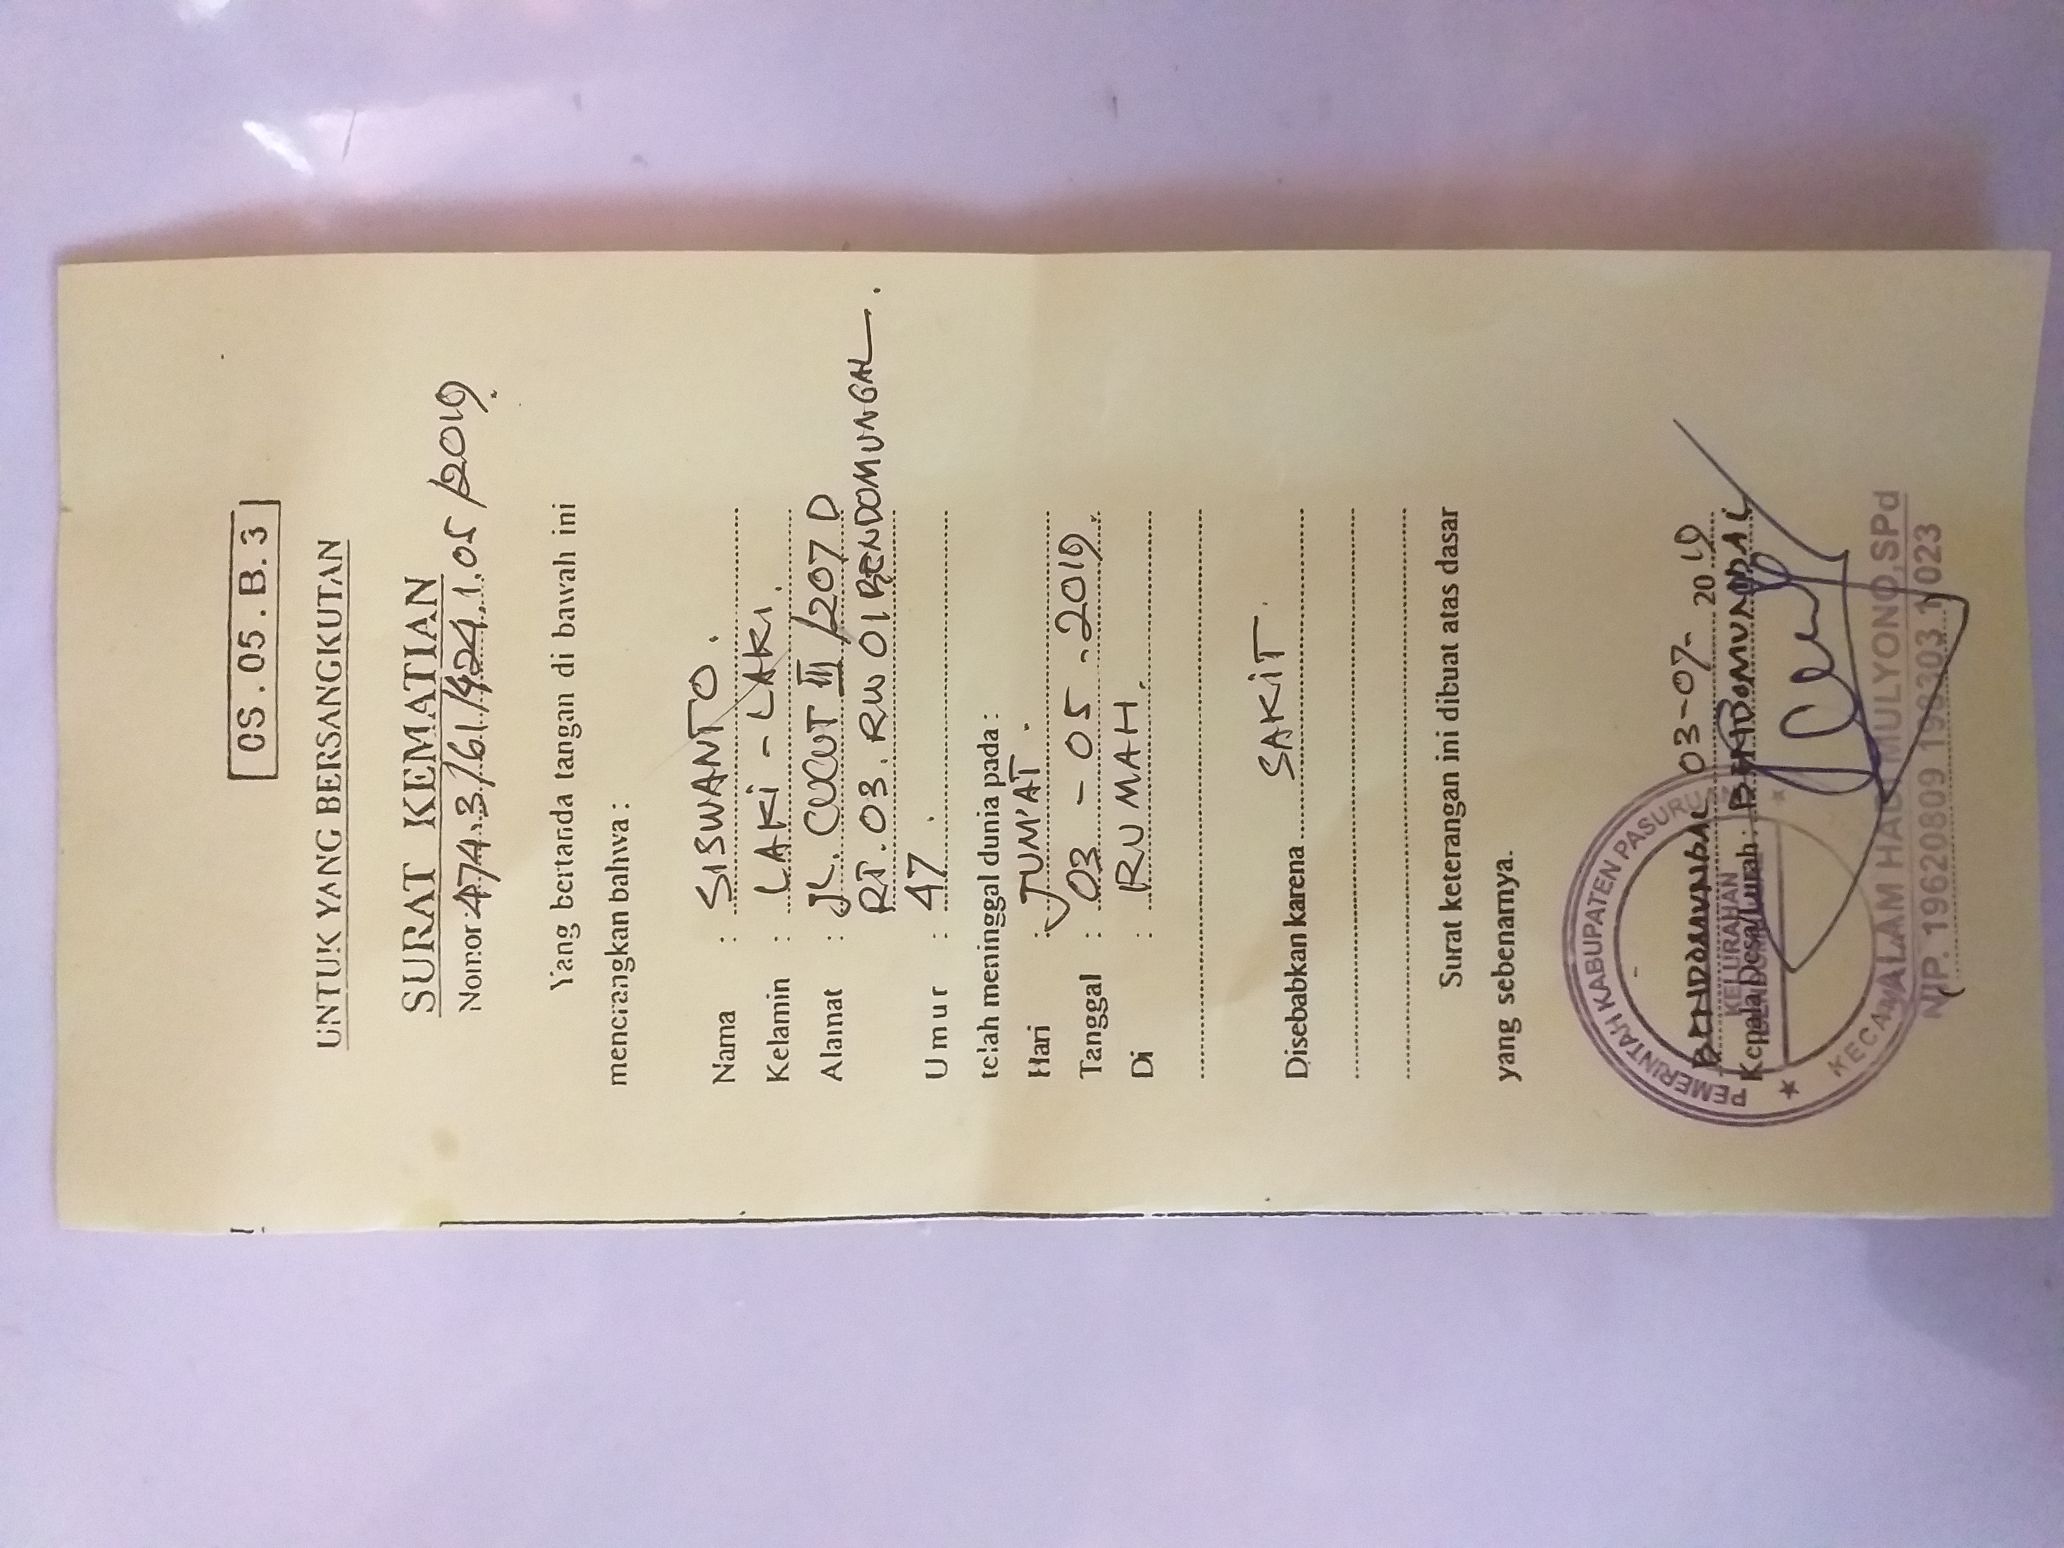 OS . 05 . B. 3
UNTUK YANG BERSANGKUTAN
SURAT KEMATIAN
Nomor : 474.3/61/424.1.05/2019.
Yang bertanda tangan di bawah ini
menerangkan bahwa :
Nama : SISWANTO.
Kelamin : LAKi - LAKI.
Alamat : JL. CUCUT III /207 D
RT. 03. RW 01 BENDOMUNGAL.
Umur : 47.
telah meninggal dunia pada :
Hari : JUM'AT.
Tanggal : 03 - 05 - 2019.
Di : RUMAH.
Disebabkan karena SAKiT.
Surat keterangan ini dibuat atas dasar
yang sebenarnya.
PEMERINTAH KABUPATEN PASURUAN
BENDOMUNGAL 03-07- 2019
KELURAHAN
BENDOMUNGAL
Kepala Desa/Lurah : BENDOMUNGAL
ALAM HADI MULYONO,SPd
NIP. 19620809 198303 1 023